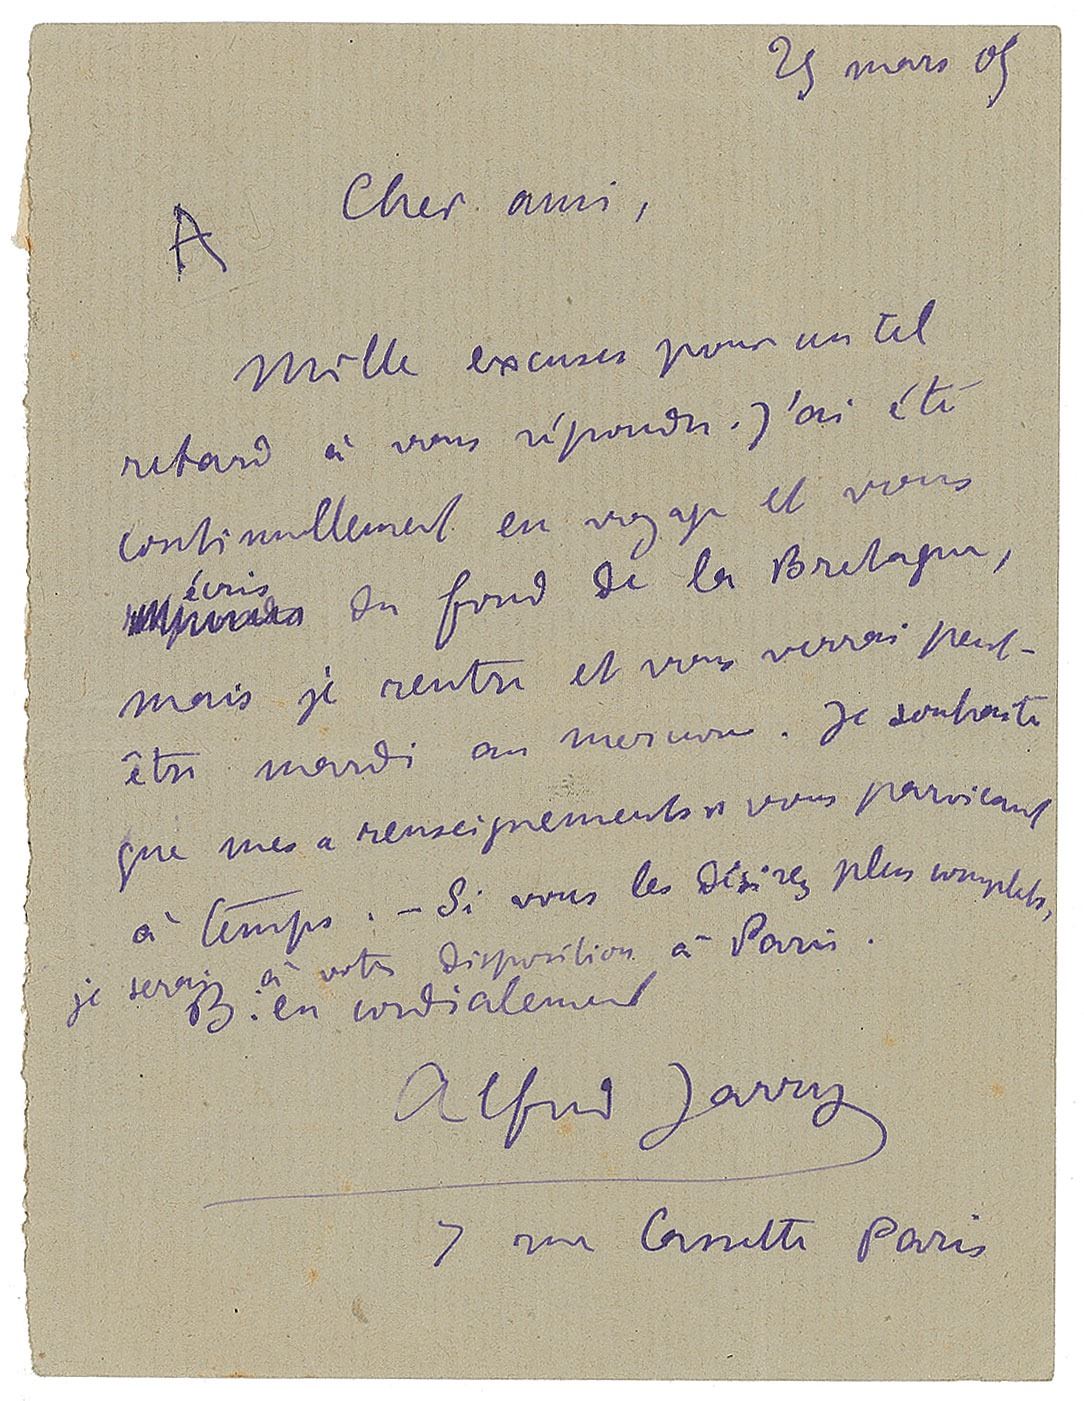 25 mars 05
Cher ami,
A
Mille excuses pour un tel
retard à vous répondre. J'ai été
continuellement en voyage et vous
écris
réponds du fond de la Bretagne,
mais je rentre et vous verrai peut-
être mardi au mercure. Je souhaite
que mes « renseignements » vous parvicent
à temps. – Si vous les désirez plus complets,
je serai à votre disposition à Paris.
Bien cordialement
Alfred Jarry
7 rue Cassette Paris